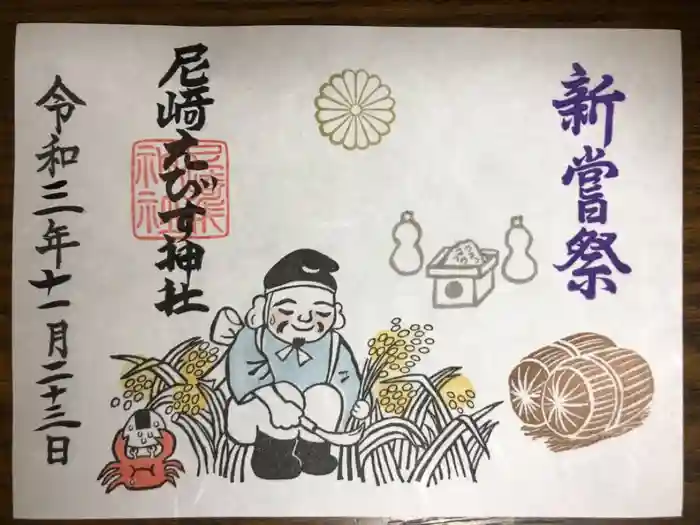 新嘗祭
尼崎えびす神社
令和三年十一月二十三日